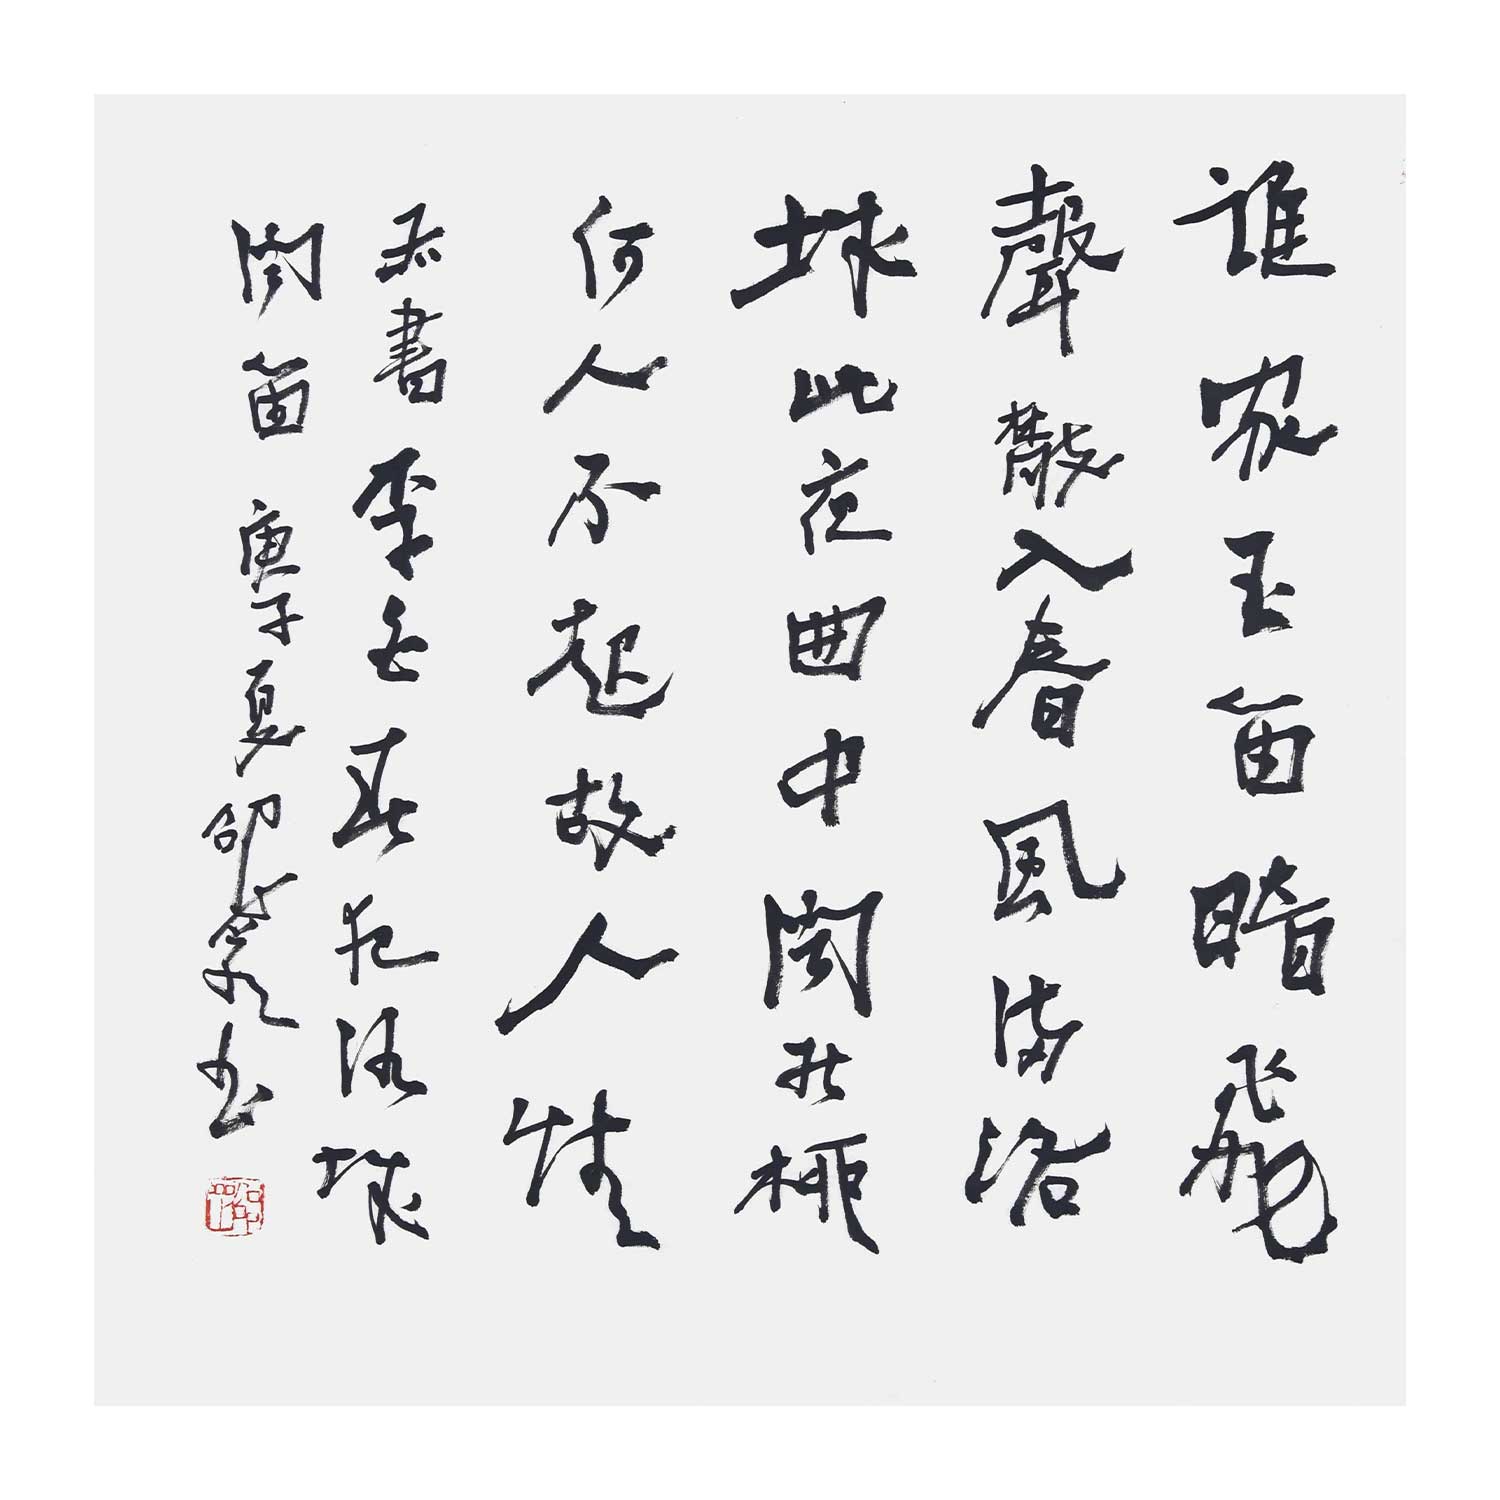 誰家玉笛暗飛
聲散入春風滿洛
城此夜曲中聞折柳
何人不起故人情
右書李白春夜洛城
聞笛 庚子夏 邵书